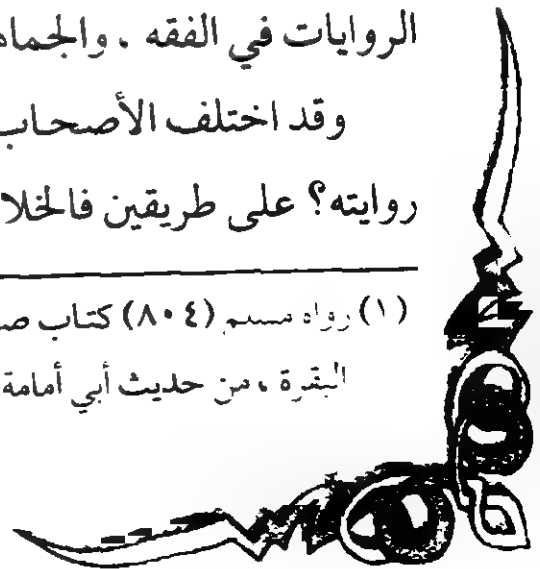 الروايات في الفقه ، والجماه
وقد اختلف الأصحاب
روايته؟ على طريقين فالخلا
(١) رواه مسلم (٨٠٤) كتاب صـ
البقرة ، من حديث أبي أمامة